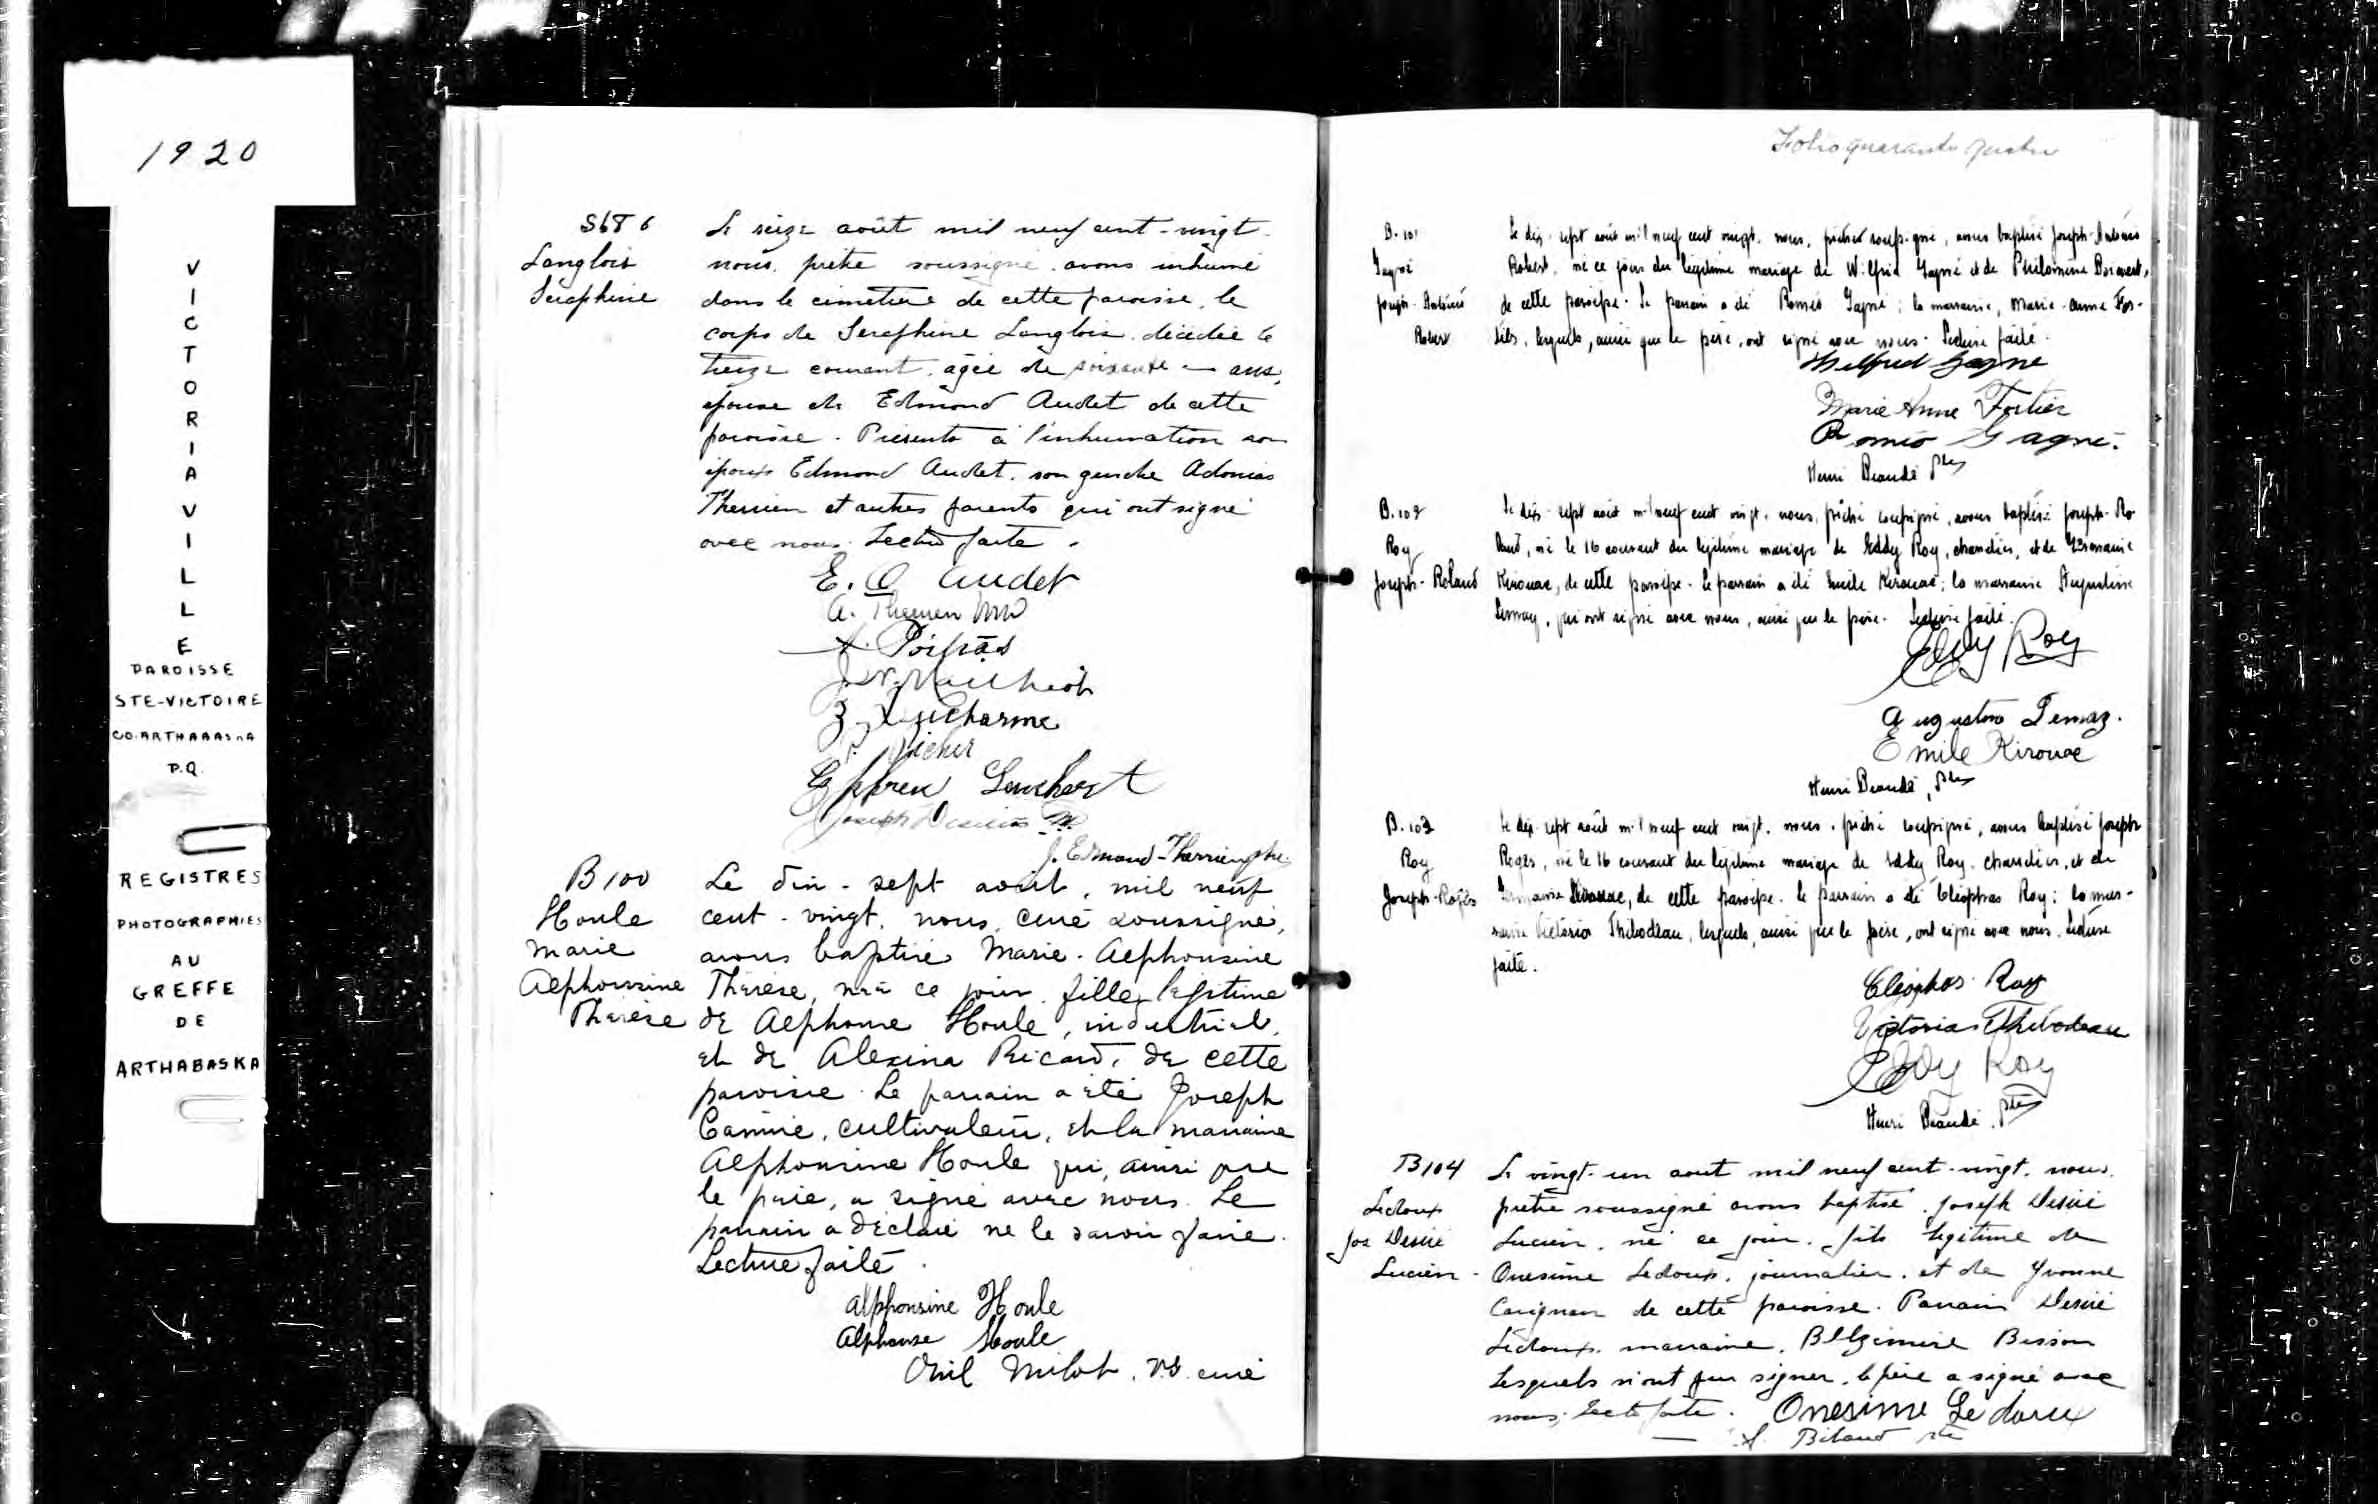 1920
VICTORIAVILLE
PAROISSE
STE-VICTOIRE
CO. ARTHABASKA
P.Q.
REGISTRES
PHOTOGRAPHIES
AU
GREFFE
DE
ARTHABASKA
S68 6
Langlois
Séraphine
Le seize août mil neuf cent-vingt
nous, prêtre soussigné avons inhumé
dans le cimetière de cette paroisse, le
corps de Seraphine Langlois décédée le
treize courant, agée de soixante ans,
épouse de Edmond Audet de cette
paroisse. Présents à l'inhumation son
époux Edmond Audet, son gendre Adonias
Therrien et autres parents qui ont signé
avec nous. Lecture faite.
E. O Audet
A. Therrien
A. Poitras
Z. Ducharme
P. Richer
Ephrem
J. Edmond Therrien ptre
B 100
Houle
Marie
Alphonsine
Thérèse
Le dix-sept août, mil neuf
cent-vingt, nous, curé soussigné,
avons baptisé Marie-Alphonsine
Thérèse, née ce jour, fille légitime
de Alphonse Houle, industriel,
et de Alexina Ricard, de cette
paroisse. Le parrain a été Joseph
cultivateur, et la marraine
Alphonsine Houle qui, ainsi que
le père, a signé avec nous. Le
parrain a déclaré ne le savoir faire.
Lecture faite.
Alphonsine Houle
Alphonse Houle
Onil Milot, V.G. curé
Folio quarante quatre
B. 101
Gagné
Joseph-Antonio
Robert
Le dix-sept août mil neuf cent vingt, nous, prêtre soussigné, avons baptisé Joseph-Antonio
Robert, né ce jour du légitime mariage de Wilfrid Gagné et de Philomène
de cette paroisse. Le parrain a été Roméo Gagné; la marraine, Marie-Anne For-
tier, lesquels, ainsi que le père, ont signé avec nous. Lecture faite.
Wilfrid Gagné
Marie Anne Fortier
Roméo Gagné.
Henri Beaudé ptre
B. 102
Roy
Joseph-Roland
Le dix-sept août mil neuf cent vingt, nous, prêtre soussigné, avons baptisé Joseph-Ro
land, né le 16 courant du légitime mariage de Eddy Roy, chandler, et de Germaine
Kirouac, de cette paroisse. Le parrain a été Emile Kirouac; la marraine Augustine
Lemay, qui ont signé avec nous, ainsi que le père. Lecture faite.
Eddy Roy
Augustine Lemay.
Emile Kirouac
Henri Beaudé, ptre
B. 103
Roy
Joseph-Roger
Le dix-sept août mil neuf cent vingt, nous, prêtre soussigné, avons baptisé Joseph
Roger, né le 16 courant du légitime mariage de Eddy Roy, chandler, et de
Germaine Kirouac, de cette paroisse. Le parrain a été Cléophas Roy; la mar-
raine Victoria Thibodeau, lesquels, ainsi que le père, ont signé avec nous. Lecture
faite.
Cléophas Roy
Victoria Thibodeau
Eddy Roy
Henri Beaudé, ptre
B104
Ledoux
Jos Désiré
Lucien
Le vingt-un août mil neuf cent-vingt, nous
prêtre soussigné avons baptisé, Joseph Désiré
Lucien, né ce jour, fils légitime de
Onesime Ledoux, journalier, et de Yvonne
Carignan de cette paroisse. Parrain Désiré
Ledoux, marraine, Bisson
Lesquels n'ont pu signer, le père a signé avec
nous. Lecte faite. Onesime Ledoux